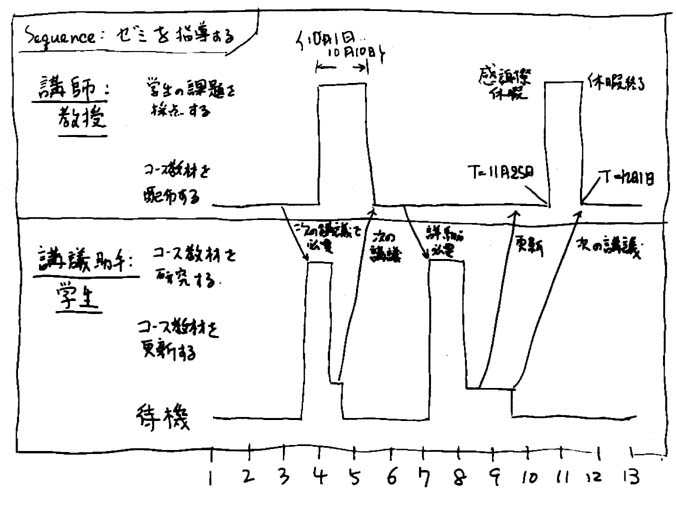 Sequence: ゼミを指導する
{10月1日..
10月10日}
講師:
教授
学生の課題を
採点する
感謝祭
休暇
休暇終了
コース教材を
配布する
T=11月25日
T=12月1日
講義助手:
学生
コース教材を
研究する
次の講義で
必要
次の
講義
詳細が
必要
更新
次の講義
コース教材を
更新する
待機
1 2 3 4 5 6 7 8 9 10 11 12 13